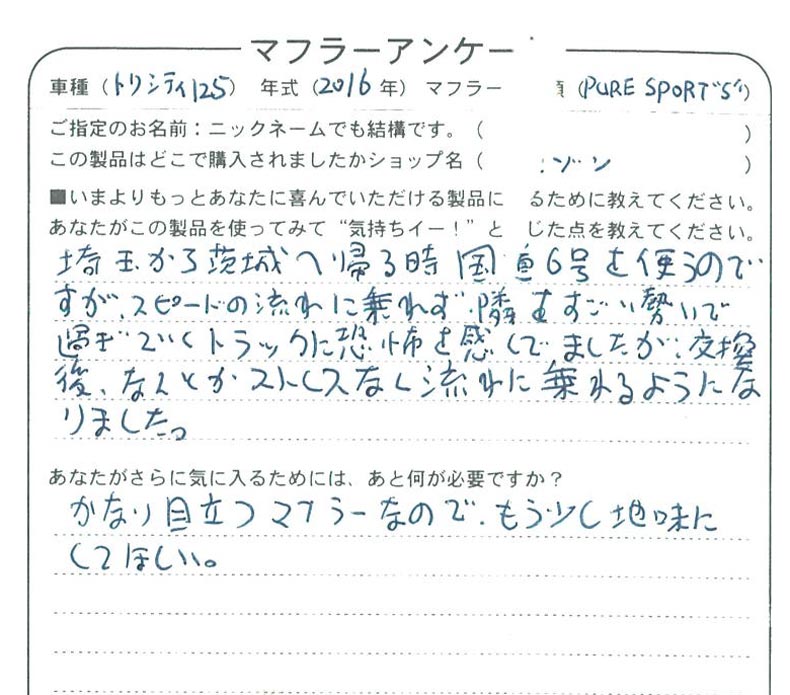 マフラーアンケー
車種（トリシティ125） 年式（2016年） マフラー （PURE SPORT"S"）
ご指定のお名前：ニックネームでも結構です。（ ）
この製品はどこで購入されましたかショップ名（ ゾン ）
■いまよりもっとあなたに喜んでいただける製品に るために教えてください。
あなたがこの製品を使ってみて“気持ちイー！”と じた点を教えてください。
埼玉から茨城へ帰る時国道6号を使うので
すが、スピードの流れに乗れず、隣をすごい勢いで
過ぎていくトラックに恐怖を感じてましたが、交換
後、なんとかストレスなく流れに乗れるようにな
りました。
あなたがさらに気に入るためには、あと何が必要ですか？
かなり目立つマフラーなので、もう少し地味に
してほしい。